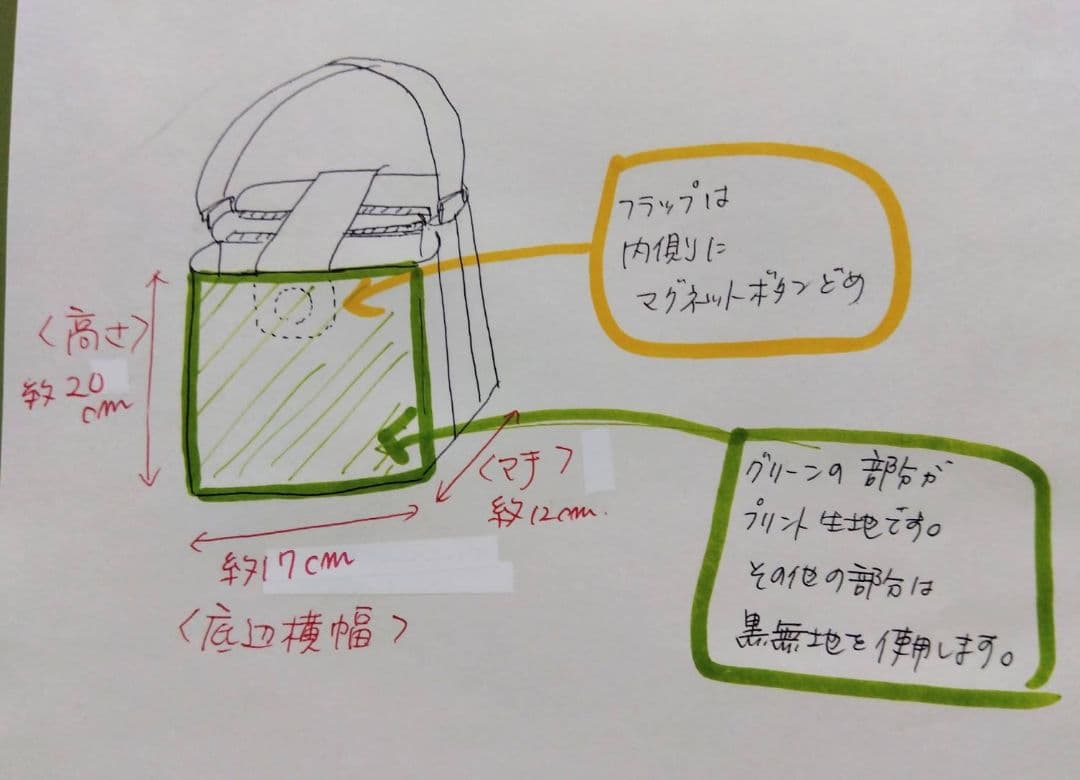 フラップは
内側に
マグネットボタンどめ
〈高さ〉
約20
cm
〈マチ〉
約12cm.
約17cm
〈底辺横幅〉
グリーンの部分が
プリント生地です。
その他の部分は
黒無地を使用します。